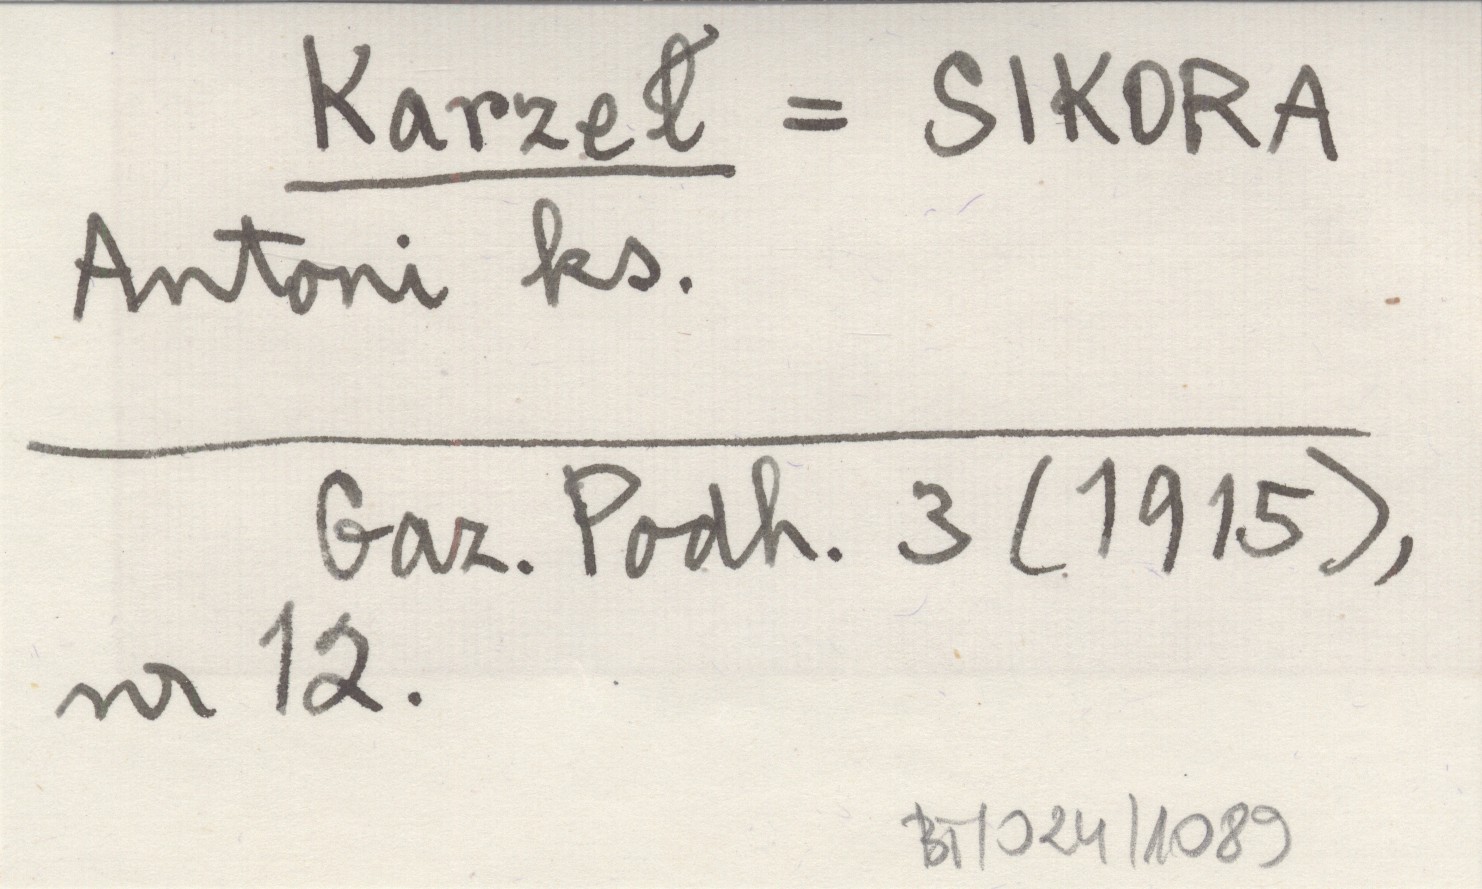 Karzeł = SIKORA
Antoni ks.
Gaz. Podh. 3 (1915),
nr 12.
BT/024/1089